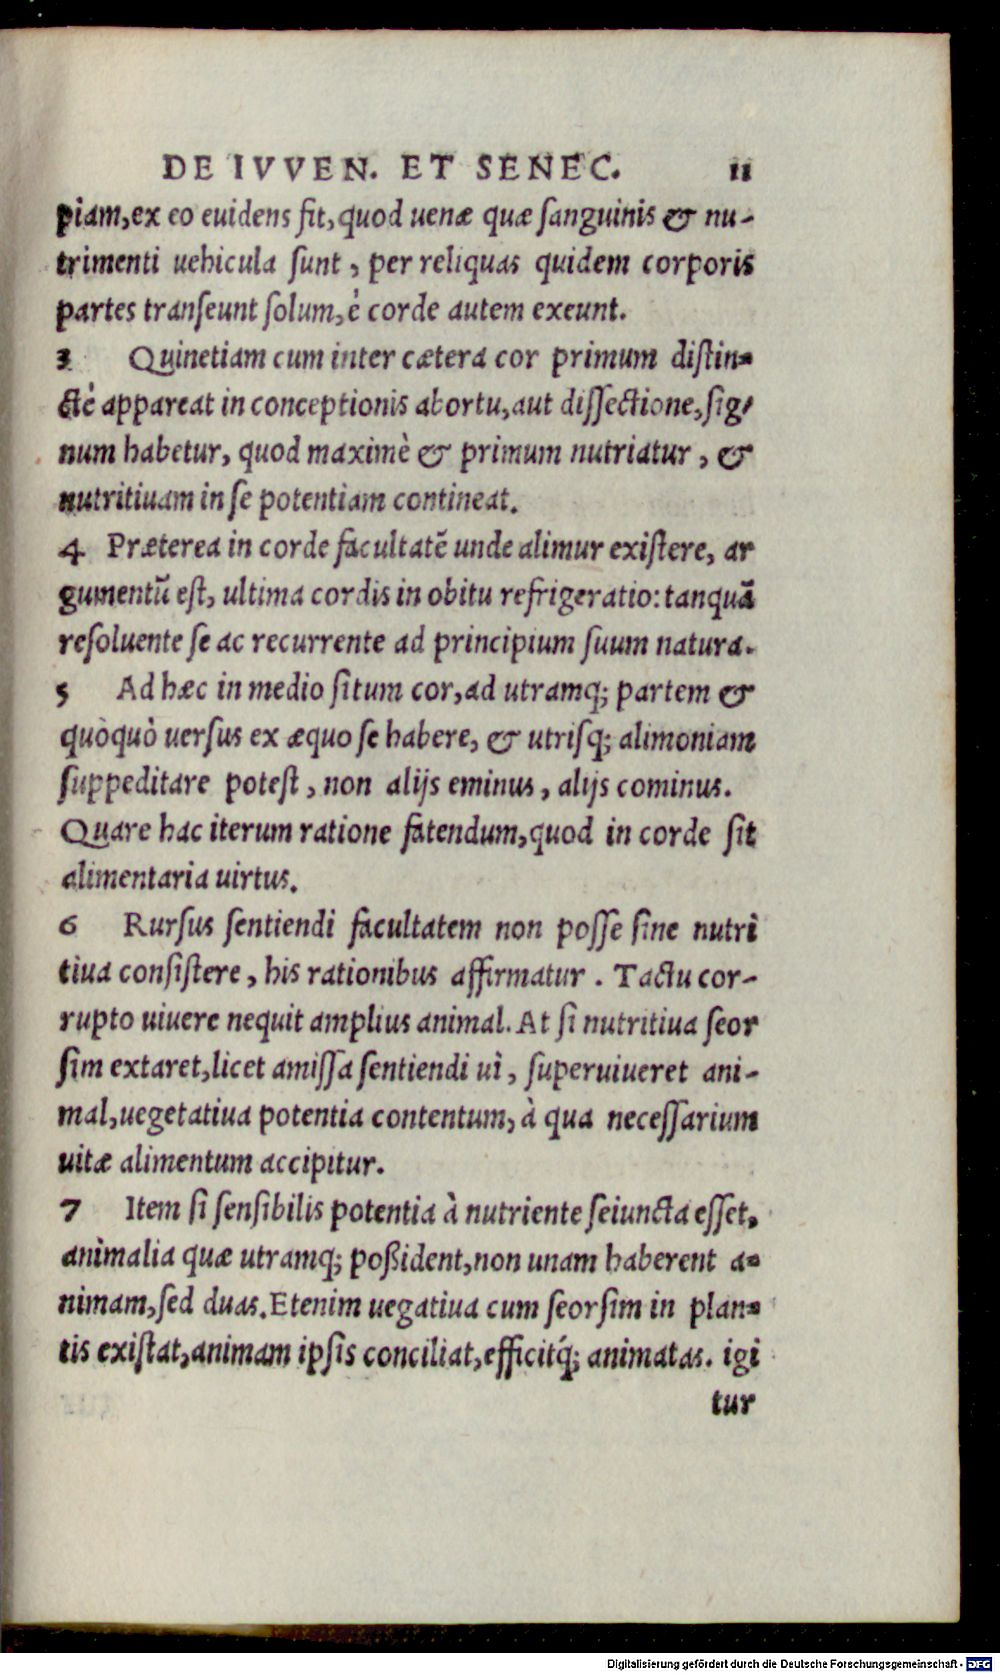 DE IVVEN. ET SENEC. 11
piam,ex eo euidens fit,quod uenæ quæ ſanguinis & nu-
trimenti uehicula ſunt, per reliquas quidem corporis
partes tranſeunt ſolum,è corde autem exeunt.
3 Quinetiam cum inter cætera cor primum diſtin-
ctè appareat in conceptionis abortu,aut diſſectione,ſig-
num habetur, quod maximè & primum nutriatur, &
nutritiuam in ſe potentiam contineat.
4 Præterea in corde facultatē unde alimur exiſtere, ar
gumentū eſt, ultima cordis in obitu refrigeratio: tanquā
reſoluente ſe ac recurrente ad principium ſuum natura.
5 Ad hæc in medio ſitum cor,ad utramq; partem &
quòquò uerſus ex æquo ſe habere, & utriſq; alimoniam
ſuppeditare poteſt, non alijs eminus, alijs cominus.
Quare hac iterum ratione fatendum,quod in corde ſit
alimentaria uirtus.
6 Rurſus ſentiendi facultatem non poſſe ſine nutri
tiua conſiſtere, his rationibus affirmatur. Tactu cor-
rupto uiuere nequit amplius animal. At ſi nutritiua ſeor
ſim extaret,licet amiſſa ſentiendi uì, ſuperuiueret ani-
mal,uegetatiua potentia contentum, à qua neceſſarium
uitæ alimentum accipitur.
7 Item ſi ſenſibilis potentia à nutriente ſeiuncta eſſet,
animalia quæ utramq; poßident,non unam haberent a-
nimam,ſed duas. Etenim uegatiua cum ſeorſim in plan-
tis exiſtat,animam ipſis conciliat,efficitq́; animatas. igi
tur
Digitalisierung gefördert durch die Deutsche Forschungsgemeinschaft - DFG